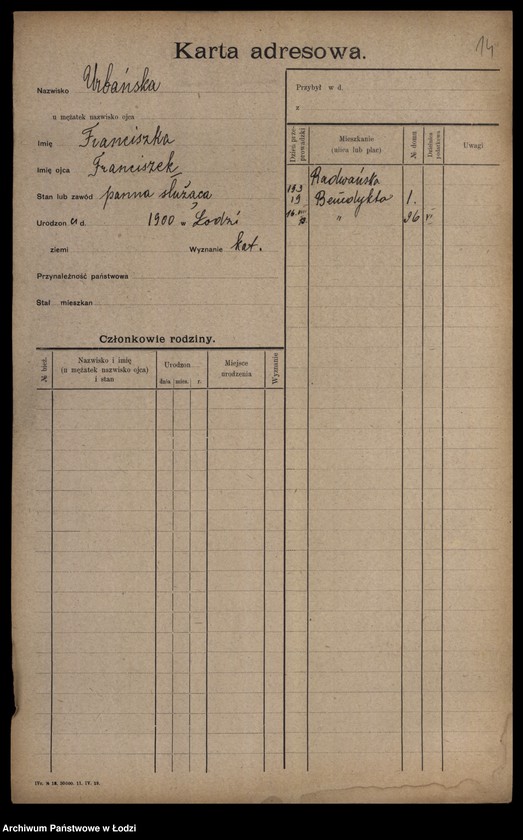 14
Karta adresowa.
Nazwisko Urbańska
u mężatek nazwisko ojca
Imię Franciszka
Imię ojca Franciszek
Stan lub zawód panna służąca
Urodzon a d. 1900 w Łodzi
ziemi Wyznanie kat.
Przynależność państwowa
Stał mieszkan
Członkowie rodziny.
№ bież.
Nazwisko i imię
(u mężatek nazwisko ojca)
i stan
Urodzon
dnia mies. r.
Miejsce
urodzenia
Wyznanie
Przybył w d.
z
Dzień prze-
prowadzki
Mieszkanie
(ulica lub plac)
№ domu
Dzielnica
podatkowa
Uwagi
Radwańska
19 Benedykta 1.
16. " 36 VI
11. IV. 18.
Archiwum Państwowe w Łodzi